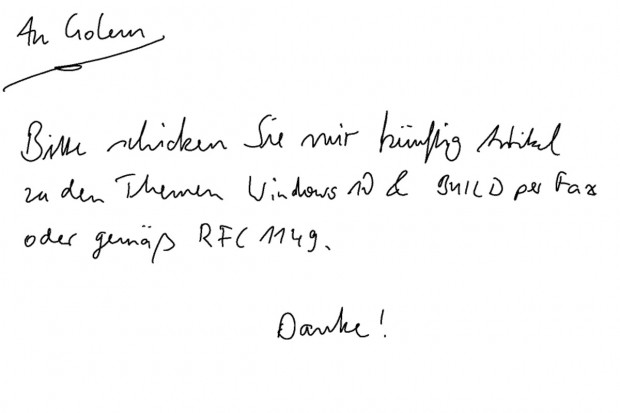 An Golem
Bitte schicken Sie mir künftig Artikel
zu den Themen Windows 10 & BUILD per Fax
oder gemäß RFC 1149.
Danke!